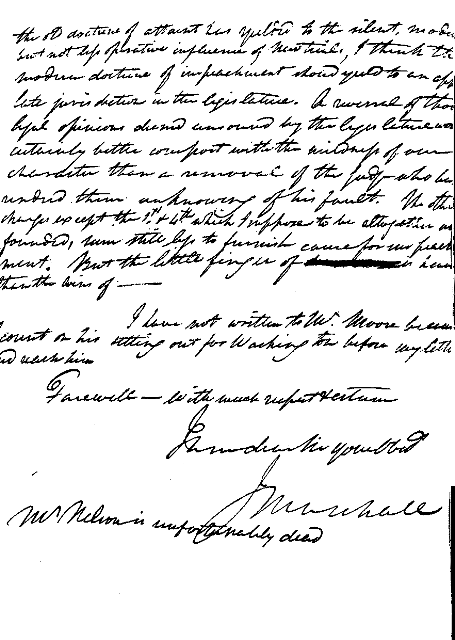 the old doctrine of attaint has yielded to the silent, moder
but not less operative influence of new trials, I think the
modern doctrine of impeachment should yield to an app
late jurisdiction in the legislature. A reversal of thos
legal opinions deemed unsound by the legislature wou
certainly better comport with the mildness of our
character than a removal of the judge who has
renderd them unknowing of his fault. The other
charges except the 1st & 4th which I suppose to be altogether un
founded, seem still less to furnish cause for impeach
ment. But the little finger of is heav
than the loins of ——
I have not written to Mr. Moore becaus
count on his setting out for Washing ton before my lette
reach him
Farewell — With much respect & esteem
I am dear Sir your Obdt
J Marshall
Mr Nelson is unfortunately dead